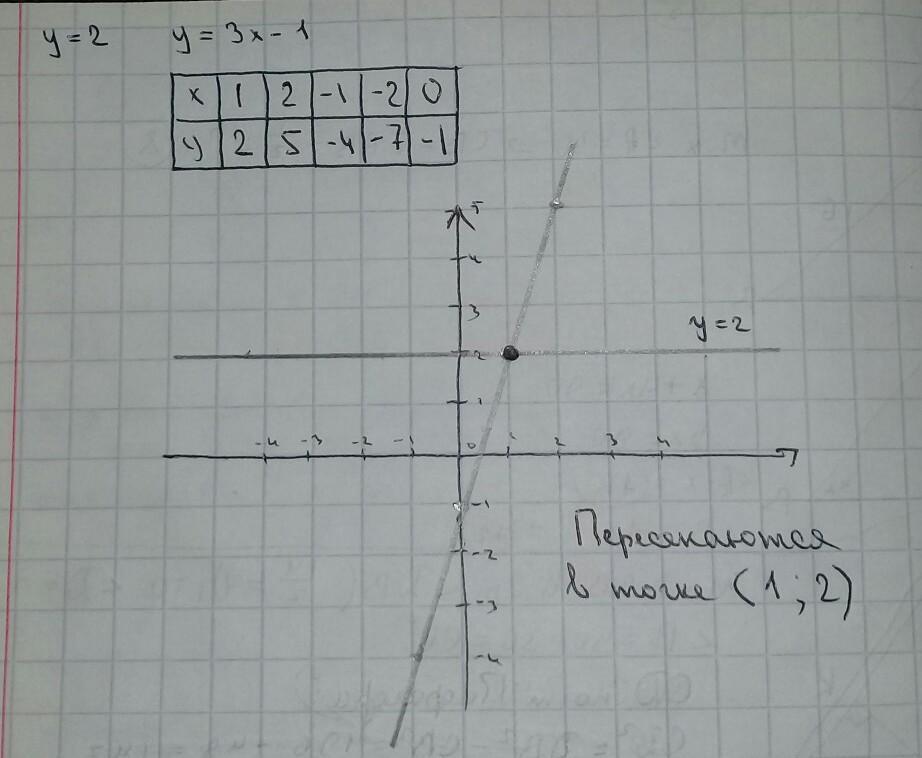 y = 2 y = 3x - 1
x 1 2 -1 -2 0
y 2 5 -4 -7 -1
5
4
3
y = 2
2
1
-4 -3 -2 -1 0 1 2 3 4
-1
-2
-3
-4
Пересекаются
в точке (1 ; 2)